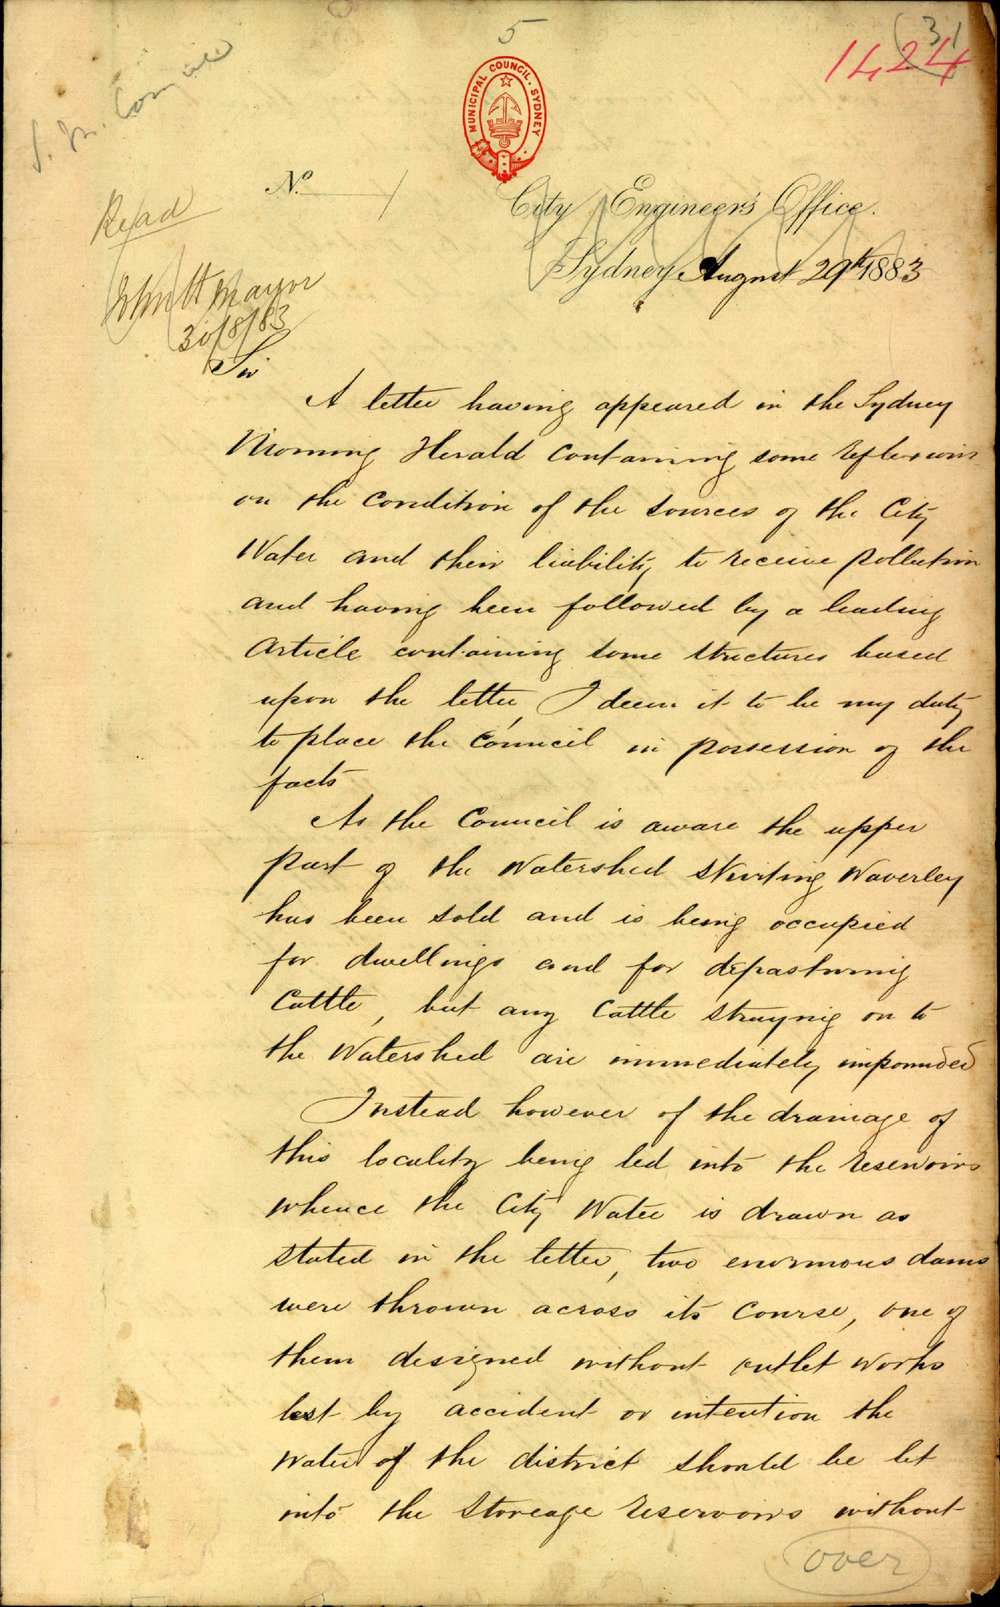 5
31
1424
MUNICIPAL COUNCIL. SYDNEY
No.
City Engineer's Office.
Sydney August 29th 1883
Read
Mayor
30/8/83
Sir
A letter having appeared in the Sydney
Morning Herald containing some reflexions
on the condition of the sources of the City
Water and their liability to receive pollution
and having been followed by a leading
article containing some strictures based
upon the letter, I deem it to be my duty
to place the Council in possession of the
facts
As the Council is aware the upper
part of the Watershed skirting Waverley
has been sold and is being occupied
for dwellings and for depasturing
Cattle, but any Cattle straying on to
the Watershed are immediately impounded
Instead however of the drainage of
this locality being led into the reservoirs
whence the City Water is drawn as
stated in the letter, two enormous dams
were thrown across its course, one of
them designed without outlet works
lest by accident or intention the
Water of the district should be let
into the storeage reservoirs without
over